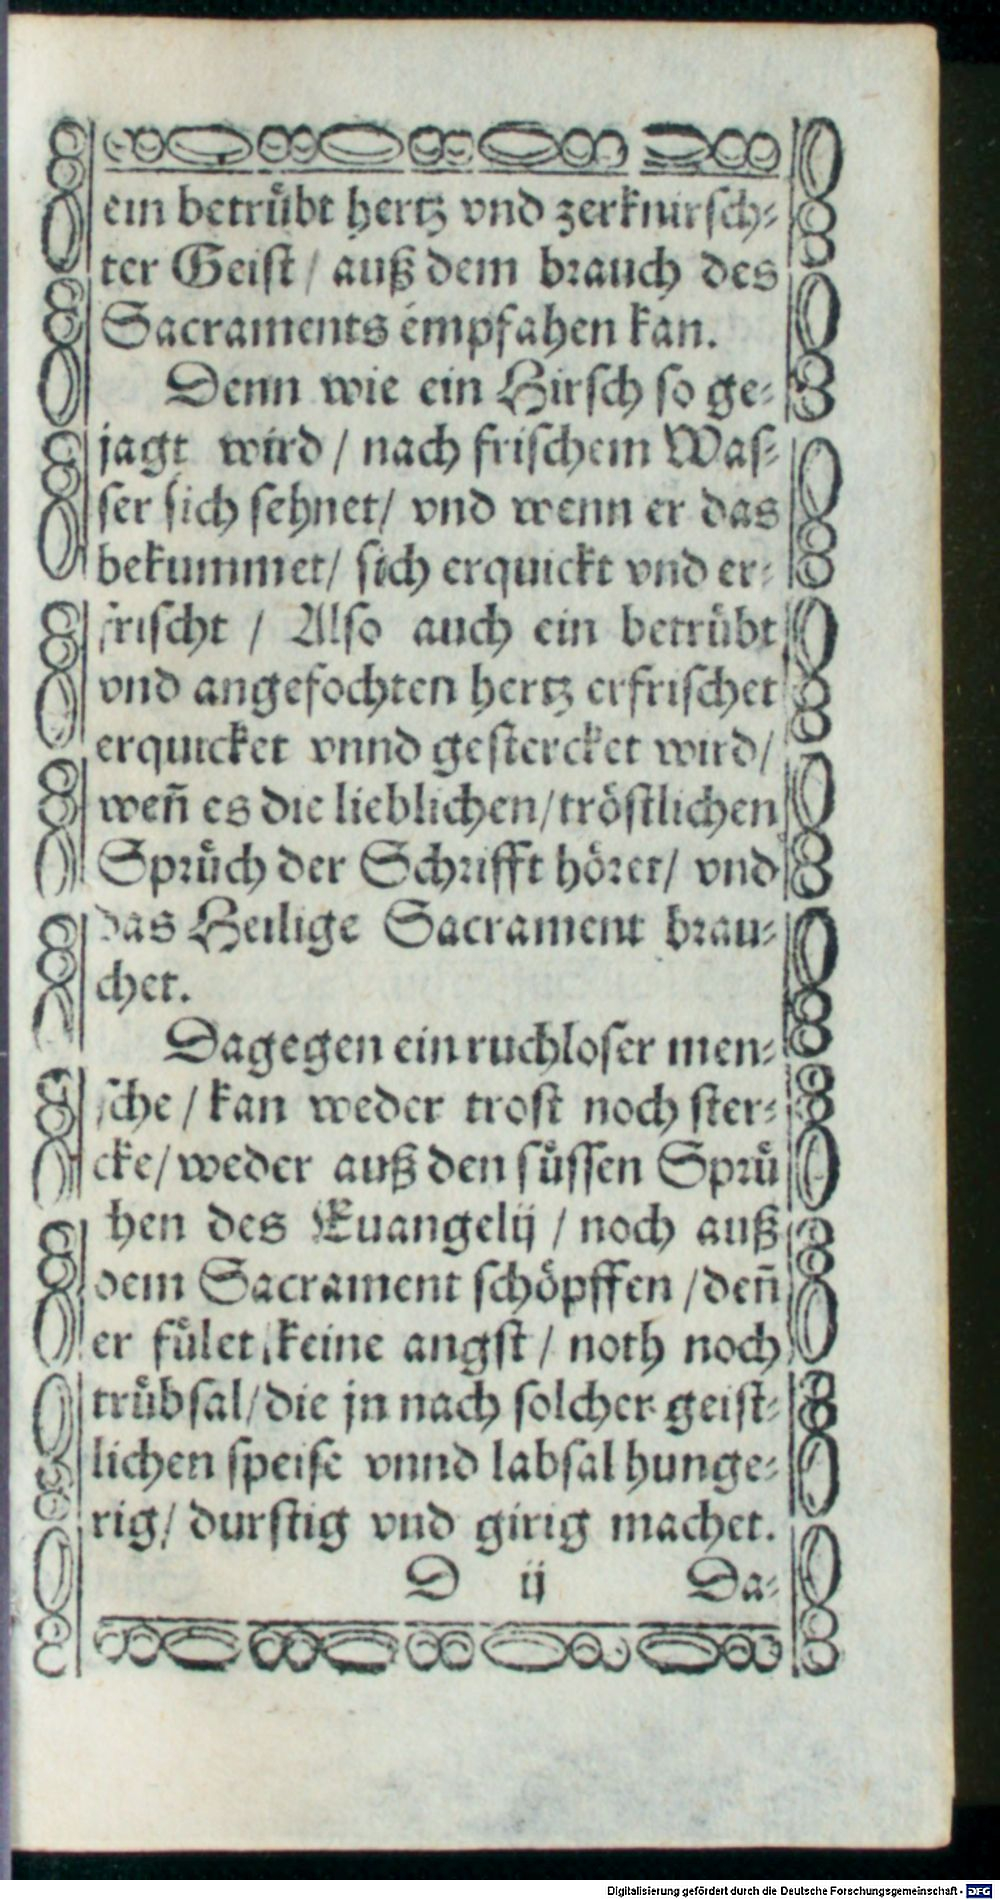 ein betrübt hertz vnd zerknirsch⸗
ter Geist / auß dem brauch des
Sacraments empfahen kan.
Denn wie ein Hirsch so ge⸗
jagt wird / nach frischem Was⸗
ser sich sehnet / vnd wenn er das
bekummet / sich erquickt vnd er⸗
frischt / Also auch ein betrübt
vnd angefochten hertz erfrischet
erquicket vnnd gestercket wird /
weñ es die lieblichen / tröstlichen
Sprüch der Schrifft höret / vnd
das Heilige Sacrament brau⸗
chet.
Dagegen ein ruchloser men⸗
sche / kan weder trost noch ster⸗
cke / weder auß den süssen Sprü
hen des Euangelij / noch auß
dem Sacrament schöpffen / deñ
er fület keine angst / noth noch
trübsal / die jn nach solcher geist⸗
lichen speise vnnd labsal hunge⸗
rig / durstig vnd girig machet.
D ij Da⸗
Digitalisierung gefördert durch die Deutsche Forschungsgemeinschaft - DFG